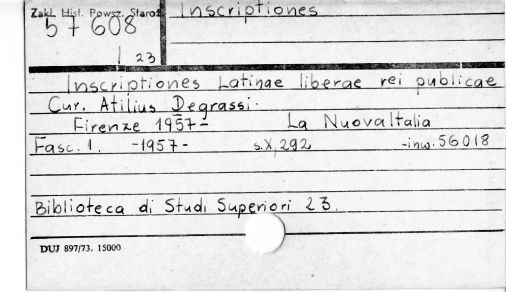 Zakł. Hist. Powsz. Staroż.
57 608
23
Inscriptiones
Inscriptiones Latinae liberae rei publicae
Cur. Atilius Degrassi.
Firenze 1957- La Nuova Italia
Fasc. 1. -1957- s.X, 292 -inw. 56018
Biblioteca di Studi Superiori 23.
DUJ 897/73. 15000